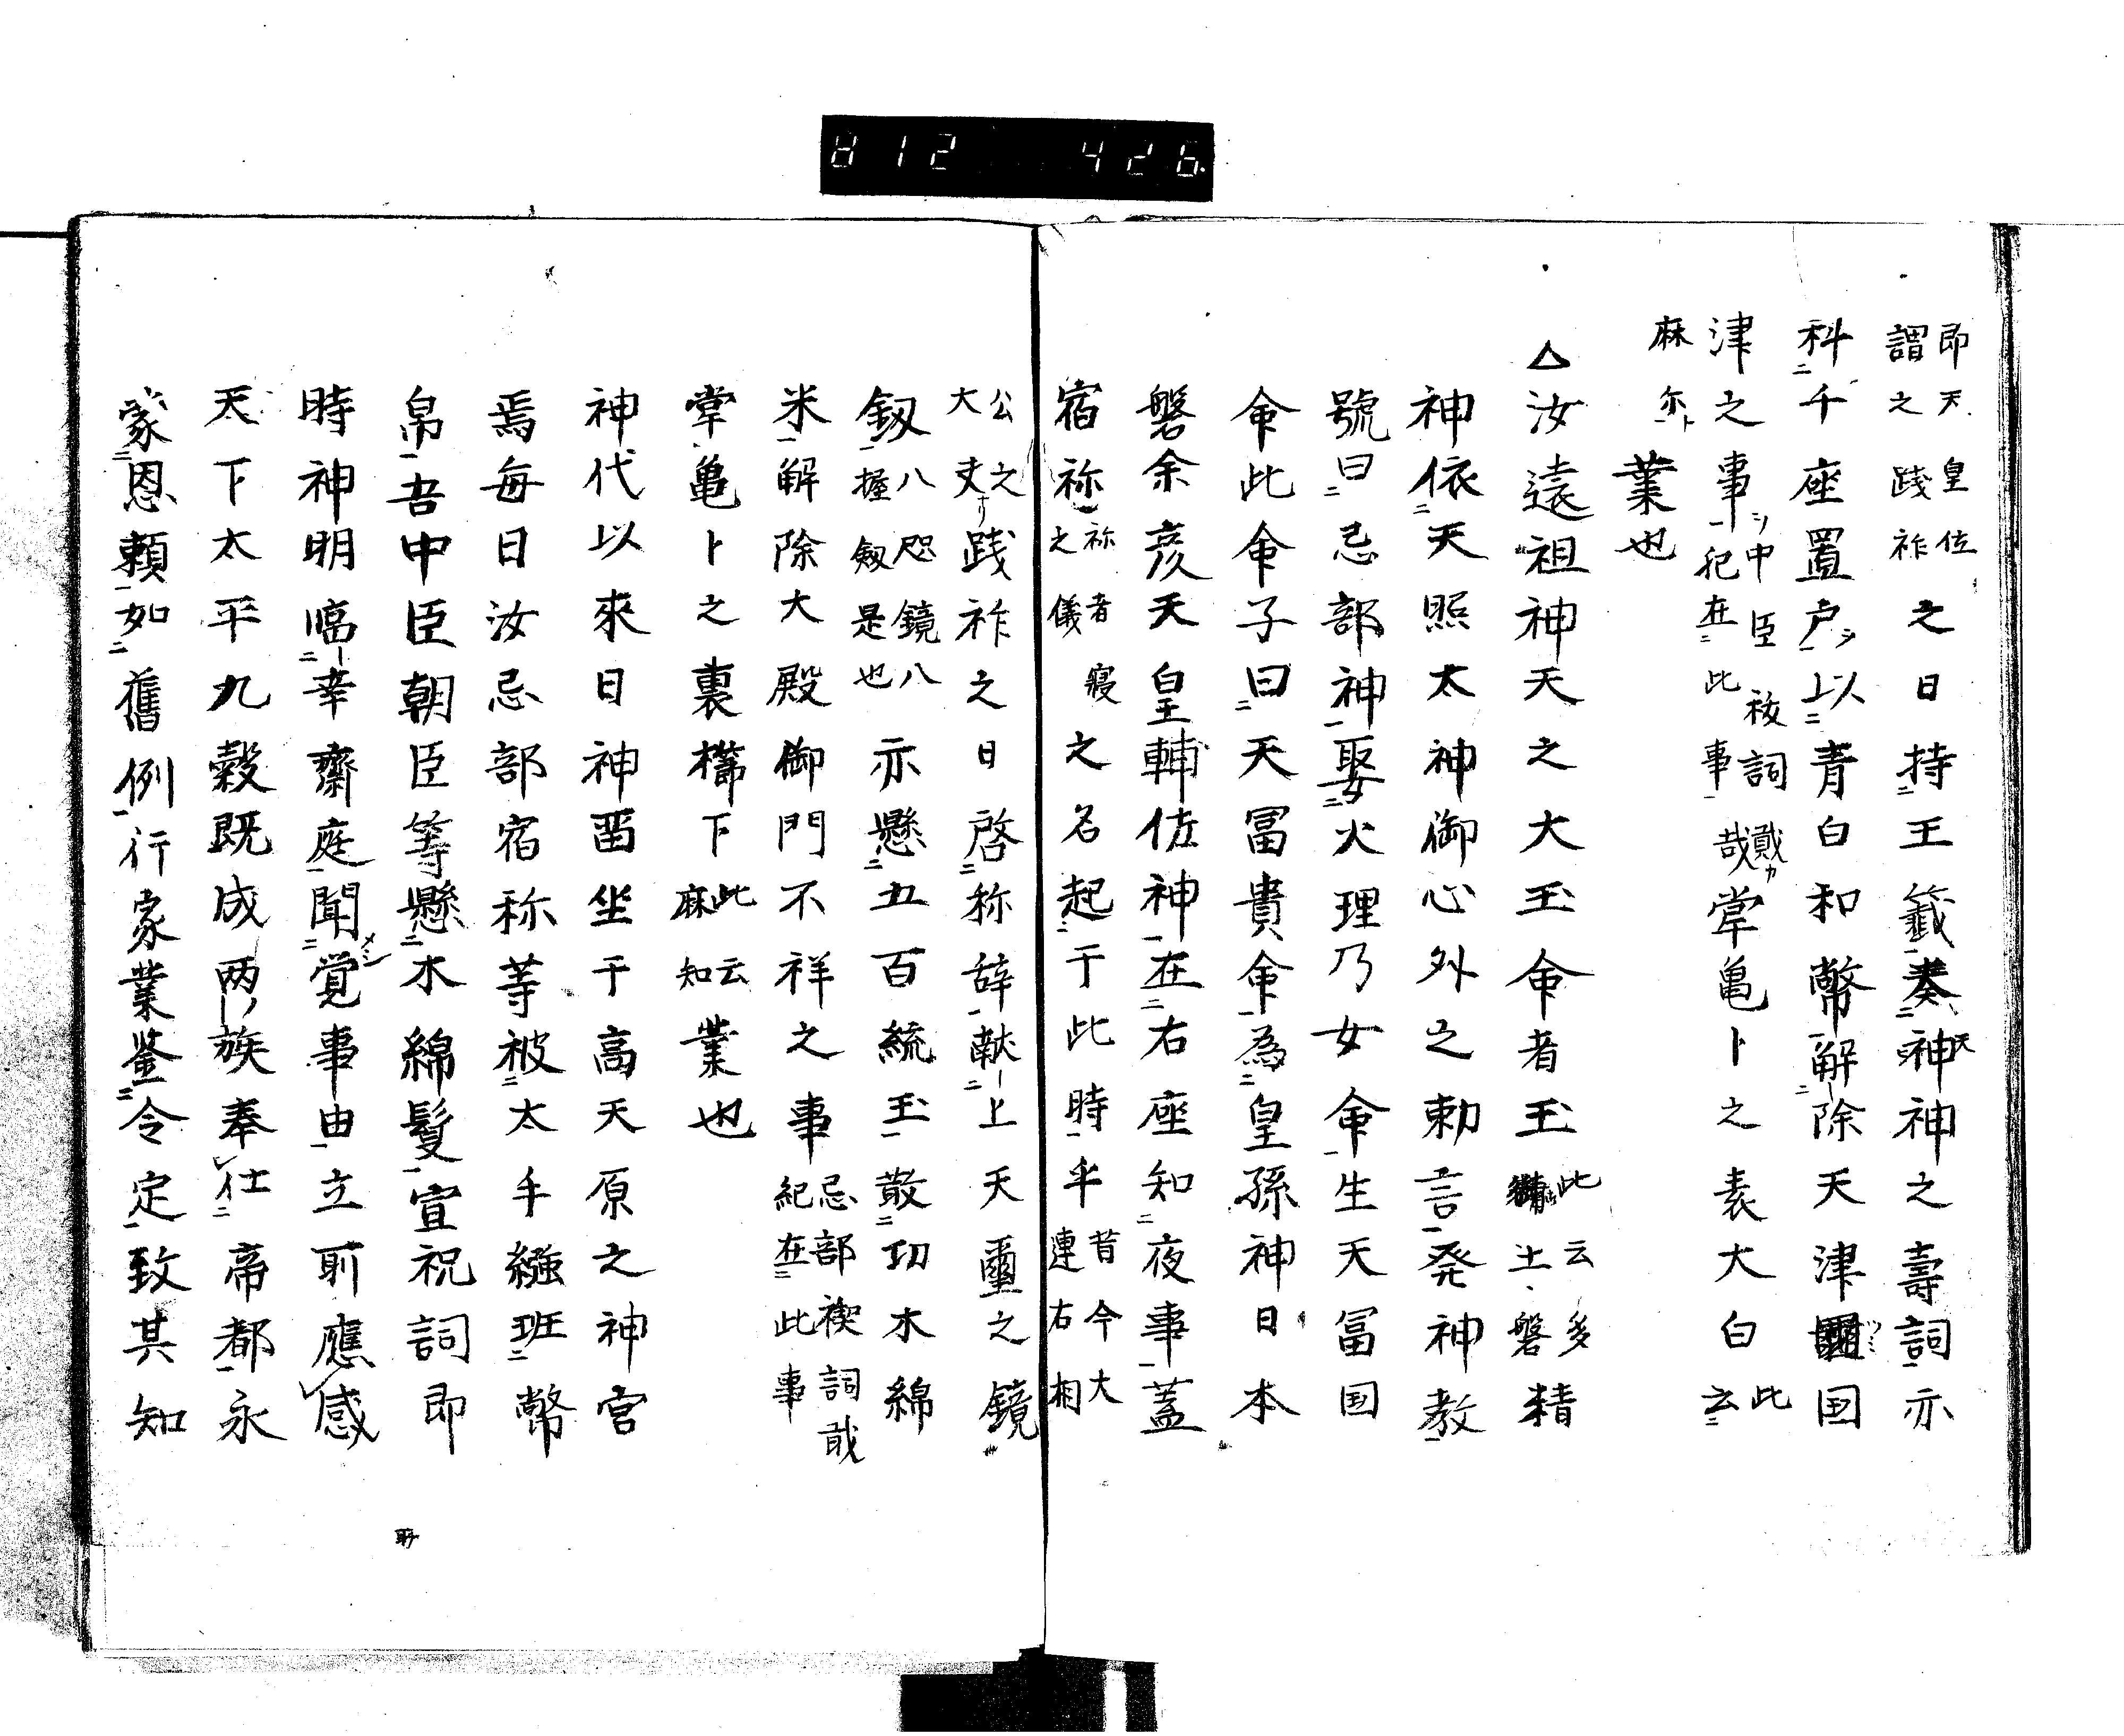 812 426
即天皇位謂之践祚之日持王籤奏神天神之壽詞亦
科千座置戸以上青白和幣解除天津国
津之事中臣祓詞犯在此事戢哉掌亀卜之表大白此云
麻尓業也
△汝遠祖神天之大玉命者玉此云多土盤精
神依天照太神御心外之勅言発神教
號曰忌部神娶火理乃女命生天冨国
命此命子曰天冨貴命為皇孫神日本
磐余彦天皇輔佐神在右座知夜事蓋
宿祢祢者之儀寝之名起于此時半昔今大連右相
公之大丈践祚之日啓称辞献上天璽之鏡
釼八咫鏡八握劔是也亦懸五百統玉散切木綿
米解除大殿御門不祥之事忌部禊詞戢紀在此事
掌亀卜之裏櫛下此云麻知業也
神代以來日神畄坐于高天原之神宮
焉毎日汝忌部宿称等被太手繦班幣
帛吾中臣朝臣等懸木綿髪宣祝詞即
時神明臨幸齋庭聞覚事由立所應感
天下太平九穀既成两族奉仕帝都永
蒙恩頼如舊例行家業鉴令定致其知